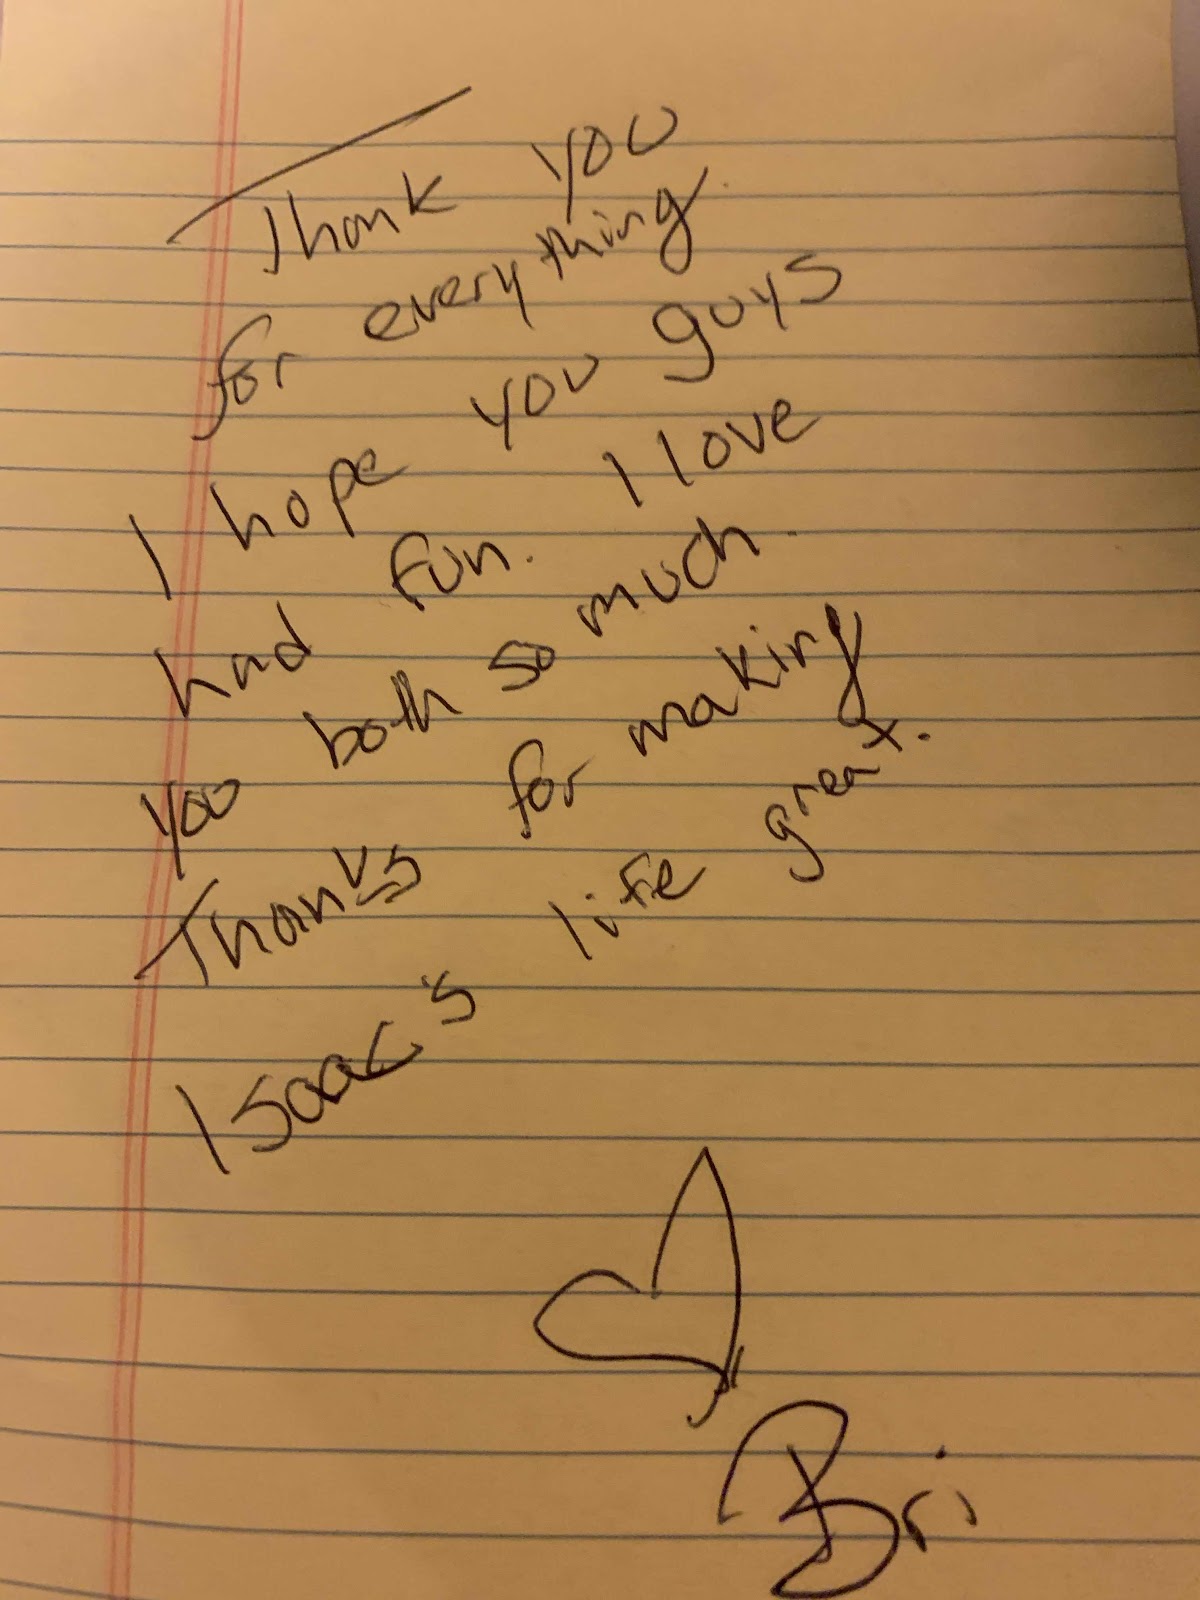 Thank you
for everything
I hope you guys
had fun. I love
you both so much.
Thanks for making
Isaac's life great.
Bri